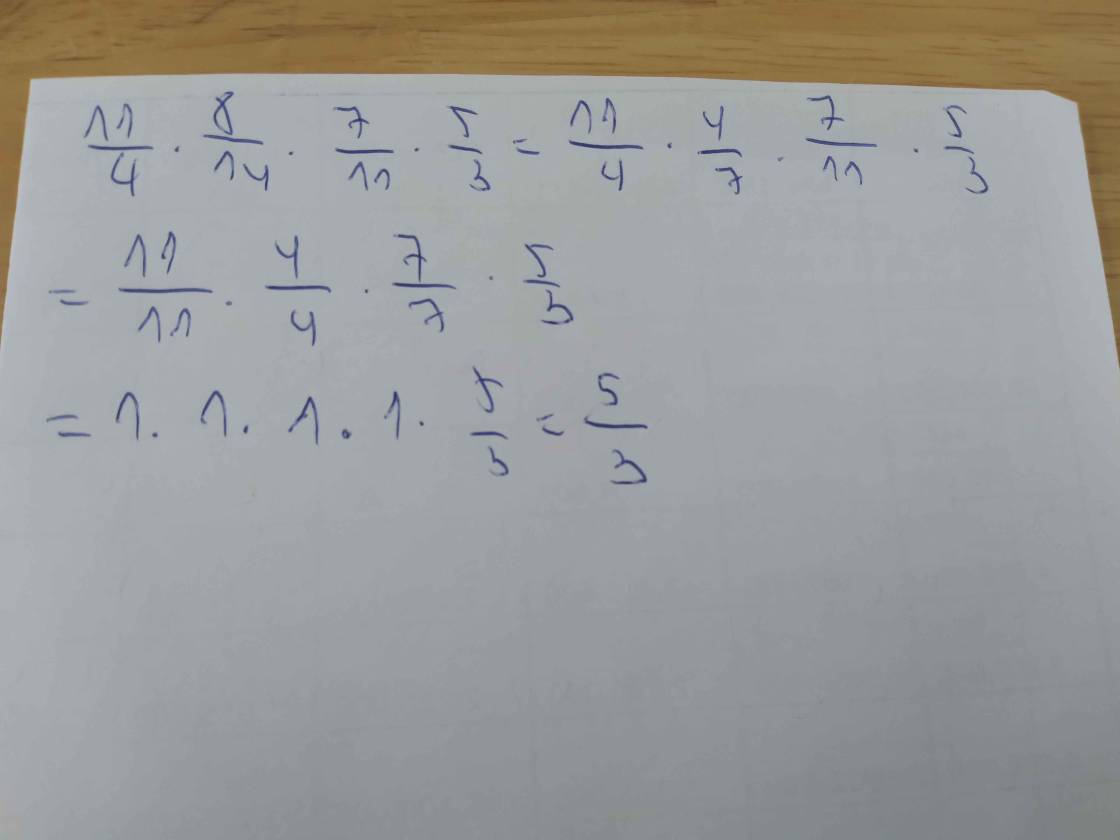 11/4 · 8/14 · 7/11 · 5/3 = 11/4 · 4/7 · 7/11 · 5/3
= 11/11 · 4/4 · 7/7 · 5/3
= 1 · 1 · 1 · 1 · 5/3 = 5/3